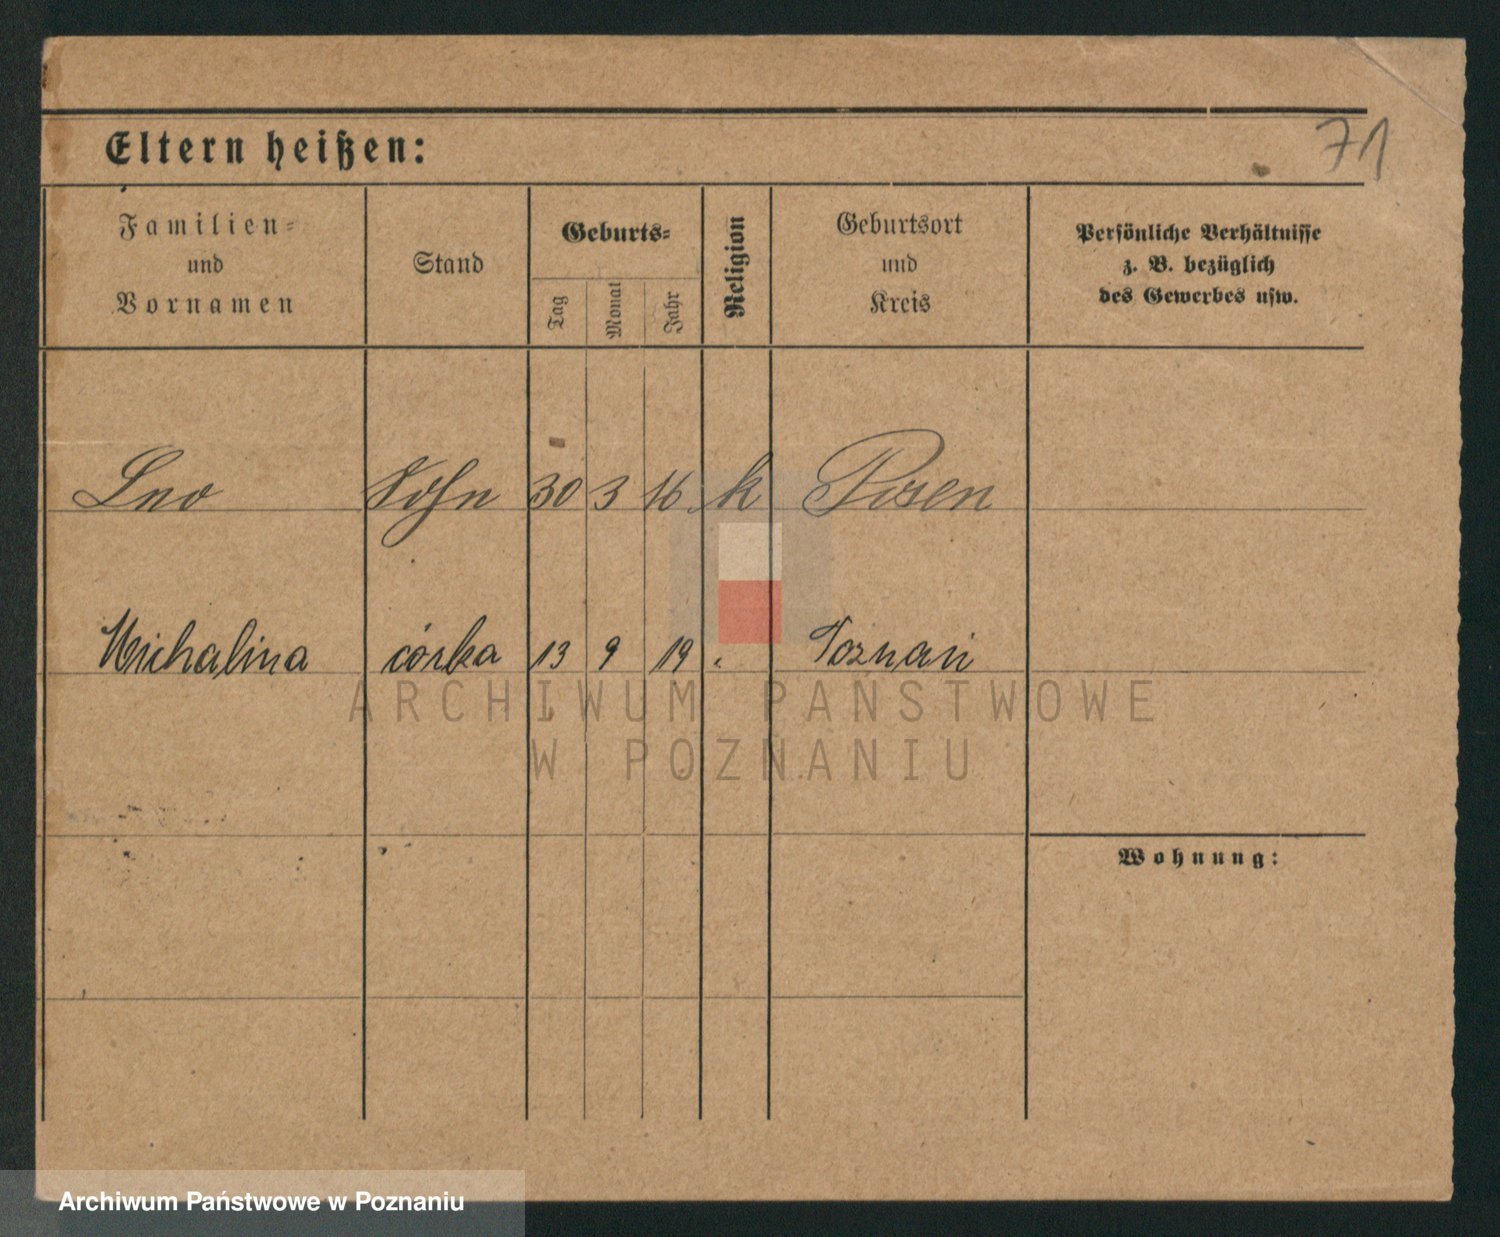 71
Eltern heißen:
Familien-
und
Vornamen
Stand
Geburts-
Tag
Monat
Jahr
Religion
Geburtsort
und
Kreis
Persönliche Verhältnisse
z. B. bezüglich
des Gewerbes usw.
Leo Sohn 30 3 16 k Posen
Michalina córka 13 9 19 " Poznań
Wohnung:
ARCHIWUM PAŃSTWOWE
W POZNANIU
Archiwum Państwowe w Poznaniu